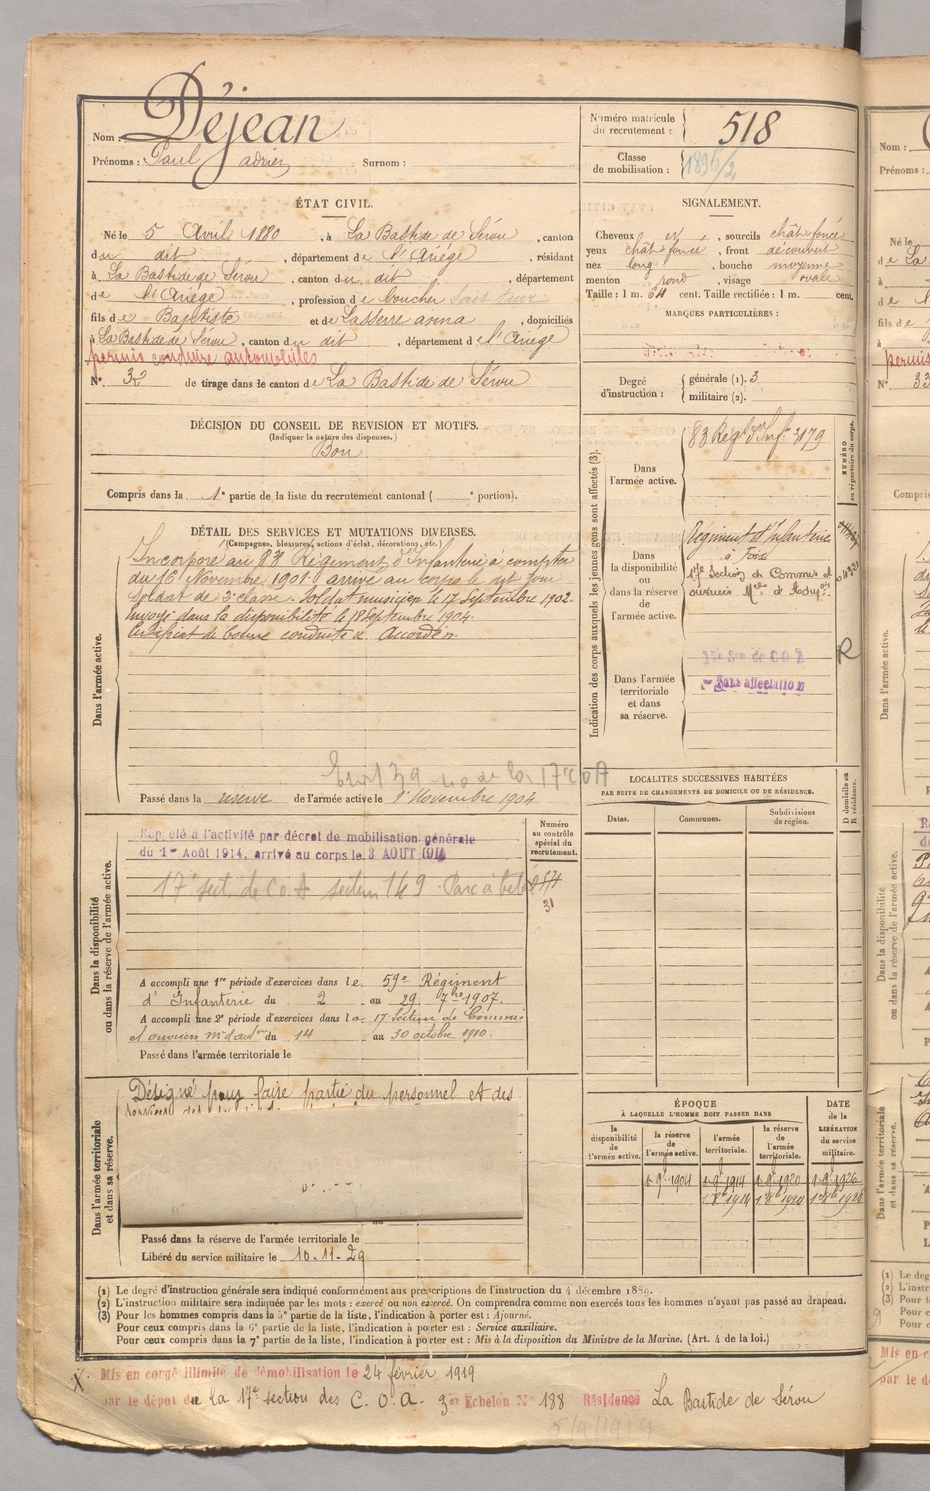 Nom : Déjean
Prénoms : Paul adrien Surnom :
Numéro matricule du recrutement : 518
Classe de mobilisation :
ÉTAT CIVIL.
Né le 5 Avril 1880, à La Bastide de Sérou, canton
du dit, département de l'Ariège, résidant
à La Bastide de Sérou, canton du dit, département
de l'Ariège, profession de boucher
fils de Baptiste et de Lasserre anna, domiciliés
à La Bastide de Sérou, canton du dit, département de l'Ariège
permis conduire automobiles
N° 32 de tirage dans le canton de La Bastide de Sérou
SIGNALEMENT.
Cheveux et, sourcils chât foncé
yeux chât foncé, front découvert
nez long, bouche moyenne
menton rond, visage ovale
Taille : 1 m. 64 cent. Taille rectifiée : 1 m. cent.
MARQUES PARTICULIÈRES :
Degré d'instruction : générale (1). 3
militaire (2).
DÉCISION DU CONSEIL DE REVISION ET MOTIFS.
(Indiquer la nature des dispenses.)
Bon
Compris dans la 1e partie de la liste du recrutement cantonal ( e portion).
DÉTAIL DES SERVICES ET MUTATIONS DIVERSES.
(Campagnes, blessures, actions d'éclat, décorations, etc.)
Dans l'armée active.
Incorporé au 83e Régiment d'Infanterie à compter
du 16 Novembre 1901. arrivé au corps le dit jour
Soldat de 2e classe. Soldat musicien le 17 Septembre 1902.
Envoyé dans la disponibilité le 18 Septembre 1904.
Certificat de bonne conduite Accordé.
Passé dans la réserve de l'armée active le 1er Novembre 1904
Indication des corps auxquels les jeunes gens sont affectés (3).
NUMÉRO au répertoire du corps.
Dans l'armée active.
83 Regt d'Inf. 3179
Dans la disponibilité ou dans la réserve de l'armée active.
Régiment d'Infanterie
à Foix
17e Section de Commis et
ouvriers
Dans l'armée territoriale et dans sa réserve.
17e Son de C O A
Sans affectation
R
LOCALITES SUCCESSIVES HABITÉES
PAR SUITE DE CHANGEMENTS DE DOMICILE OU DE RÉSIDENCE.
Dates. Communes. Subdivisions de région.
D domicile ou R résidence.
Dans la disponibilité ou dans la réserve de l'armée active.
Numéro au contrôle spécial du recrutement.
Rappelé à l'activité par décret de mobilisation générale
du 1er Août 1914, arrivé au corps le 3 AOUT 1914
17e sect. de C O A section 149 Parc à bétail
31
A accompli une 1re période d'exercices dans le 59e Régiment
d'Infanterie du 2 au 29 7bre 1907.
A accompli une 2e période d'exercices dans la 17 Section de Commis
et ouvriers du 14 au 30 octobre 1910.
Passé dans l'armée territoriale le
Dans l'armée territoriale et dans sa réserve.
Désigné pour faire partie du personnel et des
Passé dans la réserve de l'armée territoriale le
Libéré du service militaire le 10-11-29
ÉPOQUE
À LAQUELLE L'HOMME DOIT PASSER DANS
DATE de la LIBÉRATION du service militaire.
la disponibilité de l'armée active. la réserve de l'armée active. l'armée territoriale. la réserve de l'armée territoriale.
1 9bre 1904 1 9bre 1914 1 9bre 1920 1 9bre 1926
(1) Le degré d'instruction générale sera indiqué conformément aux prescriptions de l'instruction du 4 décembre 1889.
(2) L'instruction militaire sera indiquée par les mots : exercé ou non exercé. On comprendra comme non exercés tous les hommes n'ayant pas passé au drapeau.
(3) Pour les hommes compris dans la 5e partie de la liste, l'indication à porter est : Ajourné.
Pour ceux compris dans la 6e partie de la liste, l'indication à porter est : Service auxiliaire.
Pour ceux compris dans la 7e partie de la liste, l'indication à porter est : Mis à la disposition du Ministre de la Marine. (Art. 4 de la loi.)
Mis en congé illimité de démobilisation le 24 février 1919
par le dépôt de la 17e section des C. O. A. 3er Echelon N° 188 Résidence La Bastide de Sérou
5/4/1919